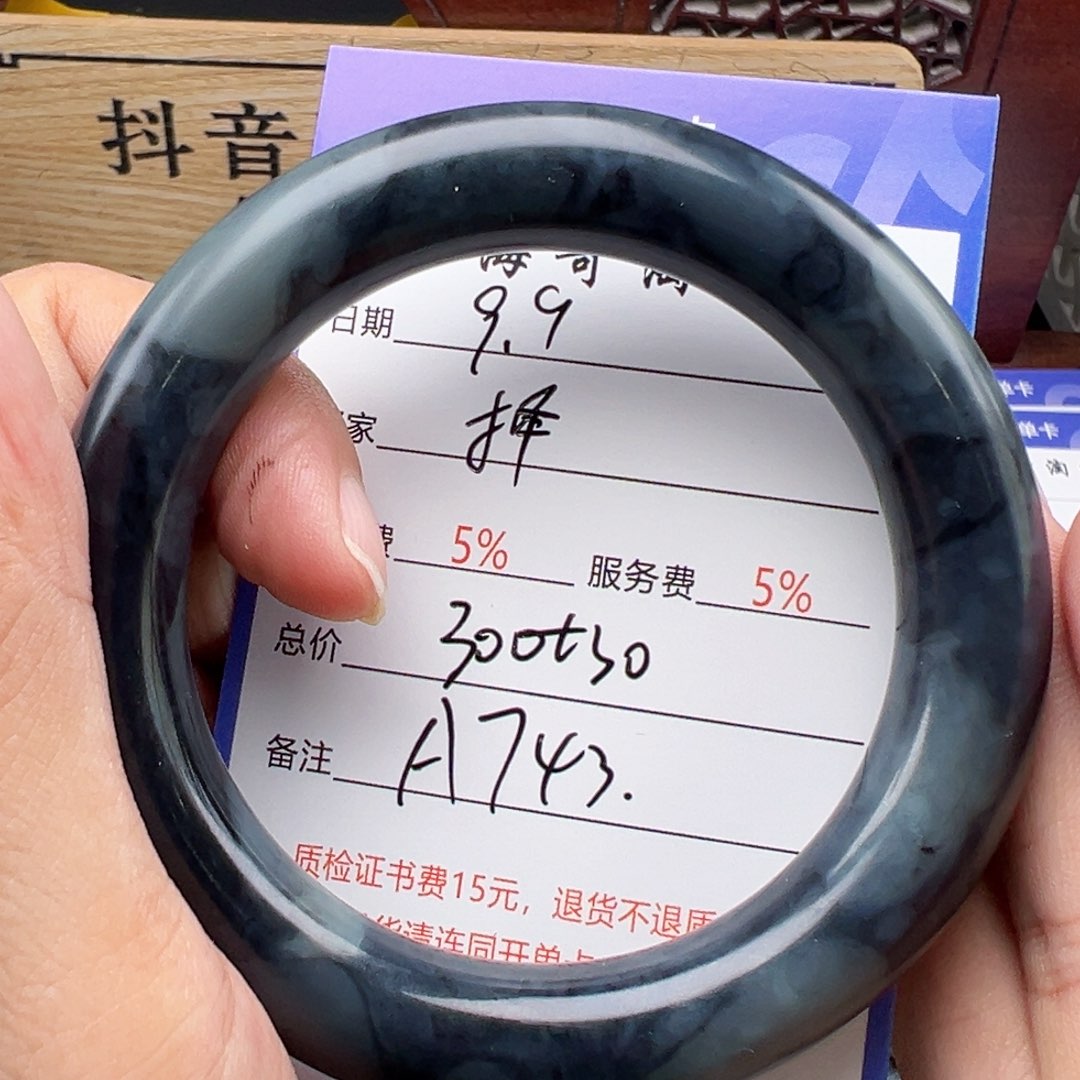 抖音
海哥淘
日期 9.9
家 择
费 5% 服务费 5%
总价 300+30
备注 A743.
质检证书费15元，退货不退质
货请连同开单卡
卡单
卡单
淘